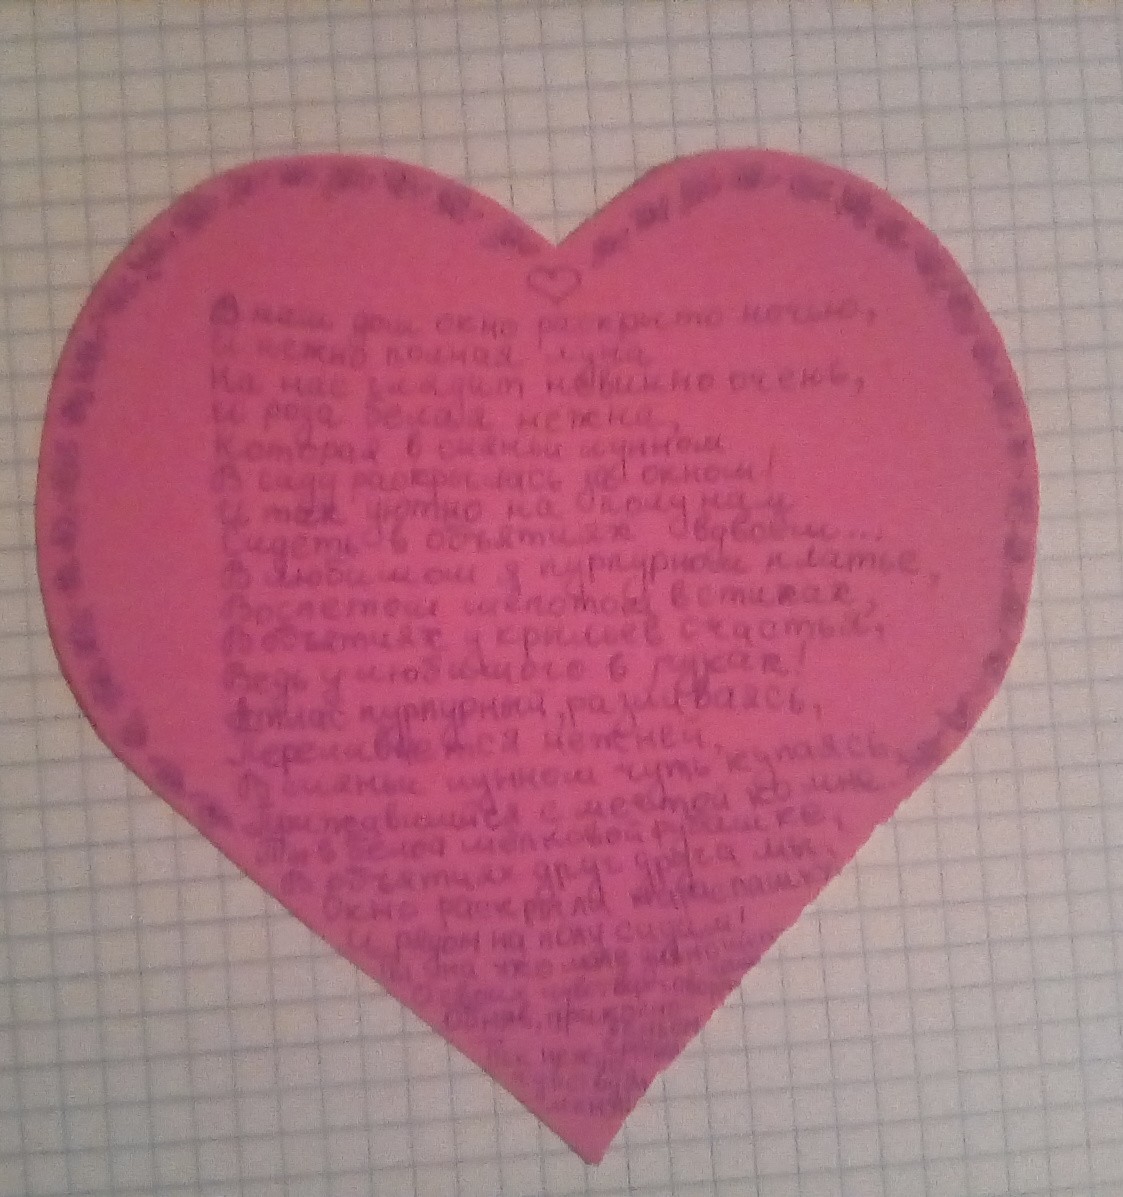 В наш дом окно раскрыто ночью,
И нежно полная луна
На нас глядит невинно очень,
И роза белая нежна,
Которая в сияньи лунном
В саду раскрылась за окном!
И так уютно на полу нам
Сидеть в объятиях вдвоём...
В любимом я пурпурном платье,
Воспетом шёпотом в стихах,
В объятиях у крыльев счастья,
Ведь у любимого в руках!
Атлас пурпурный, разливаясь,
Переливается нежней,
В сияньи лунном чуть купаясь,
с мечтой ко мне
Ты в белой шёлковой рубашке,
В объятиях друг друга мы,
Окно раскрыли нараспашку
И рядом на полу сидим!
на ухо мне
Обняв,